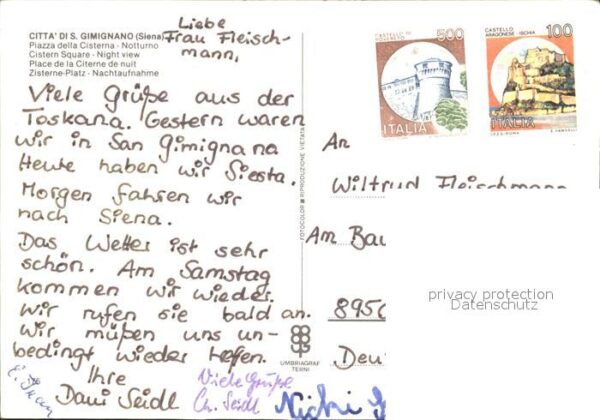 CITTA' DI S. GIMIGNANO (Siena)
Piazza della Cisterna - Notturno
Cistern Square - Night view
Place de la Citerne de nuit
Zisterne-Platz - Nachtaufnahme
Liebe
Frau Fleisch-
mann,
Viele Grüße aus der
Toskana. Gestern waren
wir in San Gimignana
Heute haben wir Siesta.
Morgen fahren wir
nach Siena.
Das Wetter ist sehr
schön. Am Samstag
kommen wir wieder.
Wir rufen sie bald an.
Wir müßen uns un-
bedingt wieder treffen.
Ihre
Dani Seidl
Viele Grüße
Ch. Seidl
Nicki
176
FOTOCOLOR - RIPRODUZIONE VIETATA
UMBRIAGRAF
TERNI
CASTELLO DI
ROVERETO
500
ITALIA
CASTELLO
ARAGONESE ISCHIA
100
ITALIA
An
Wiltrud Fleischmann
Am Bau
8950
Deu
privacy protection
Datenschutz